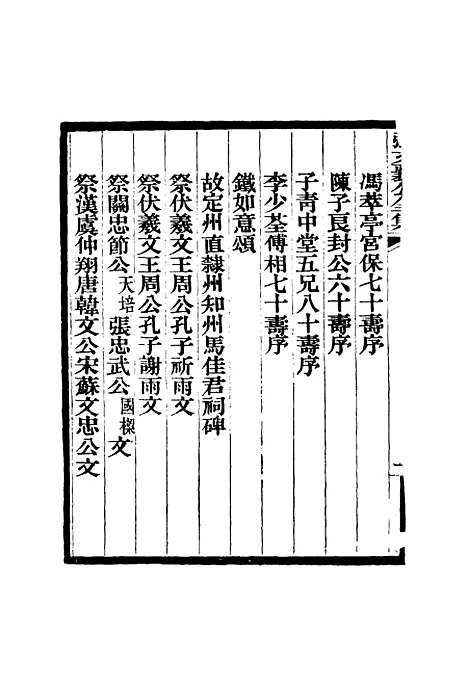 馮萃亭宮保七十壽序
陳子良封公六十壽序
子青中堂五兄八十壽序
李少荃傅相七十壽序
鐵如意頌
故定州直隸州知州馬佳君祠碑
祭伏羲文王周公孔子祈雨文
祭伏羲文王周公孔子謝雨文
祭關忠節公天培張忠武公國樑文
祭漢虞仲翔唐韓文公宋蘇文忠公文